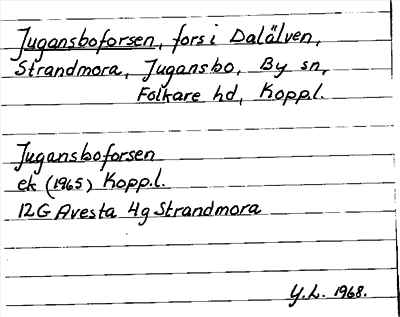 Jugansboforsen, fors i Dalälven,
Strandmora, Jugansbo, By sn,
Folkare hd, Kopp.l.
Jugansboforsen
ek (1965) Kopp.l.
12G Avesta 4g Strandmora
Y.L. 1968.